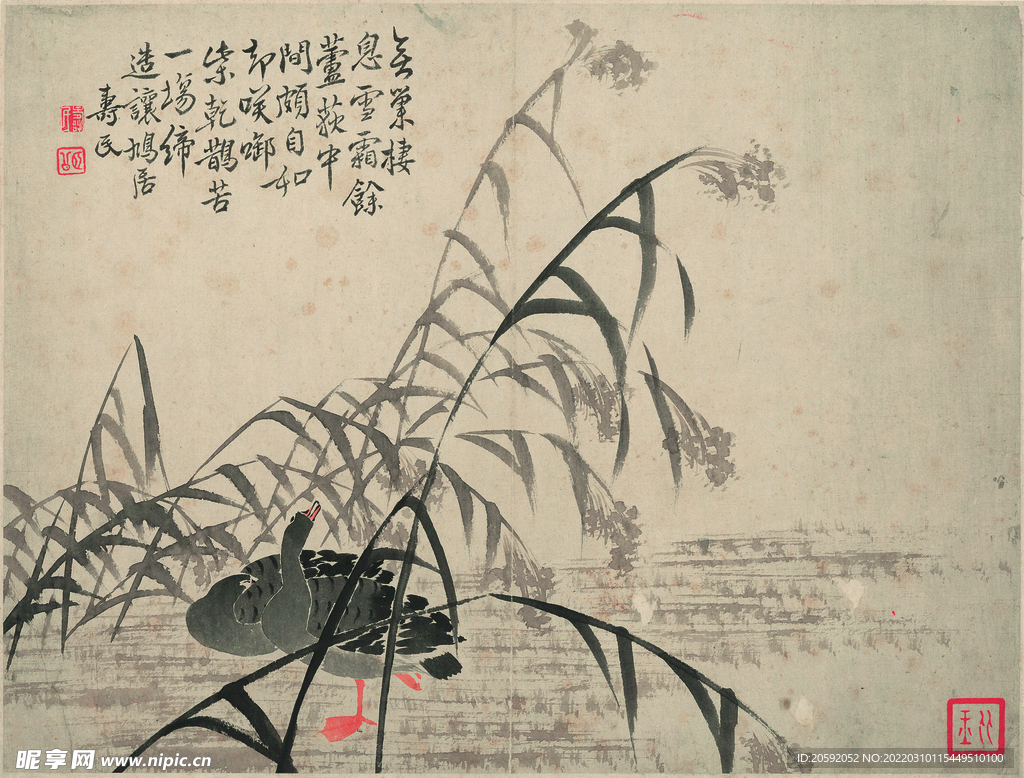 无巢棲
息雪霜餘
蘆荻中
間頗自如
却咲啣
柴乾鵲苦
一場締
造讓鳩居
壽民
昵享网 www.nipic.cn
ID:20592052 NO:20220310115449510100